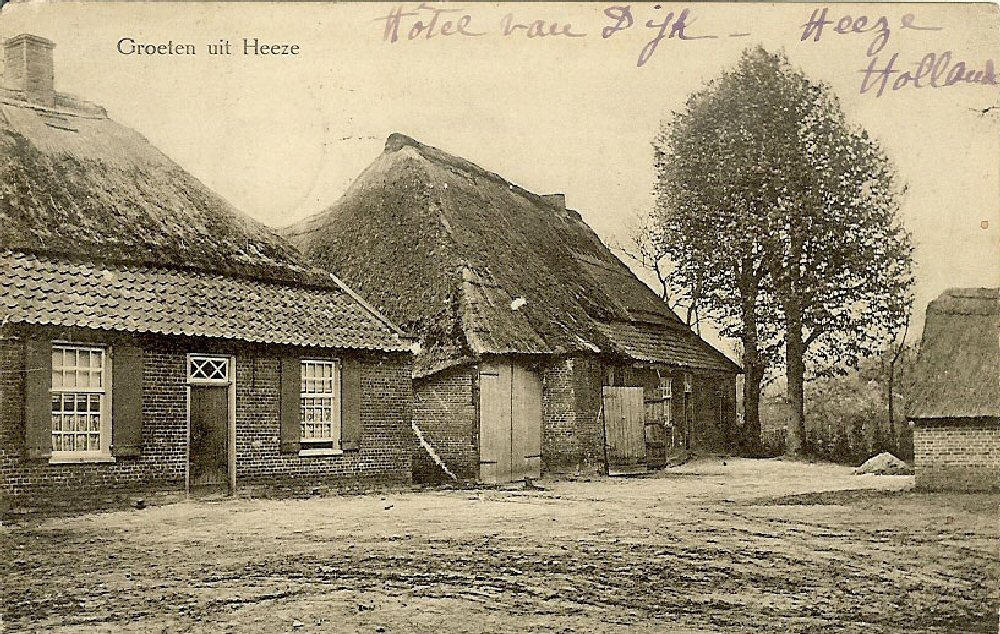 Groeten uit Heeze
Hôtel van Dijk - Heeze
Holland